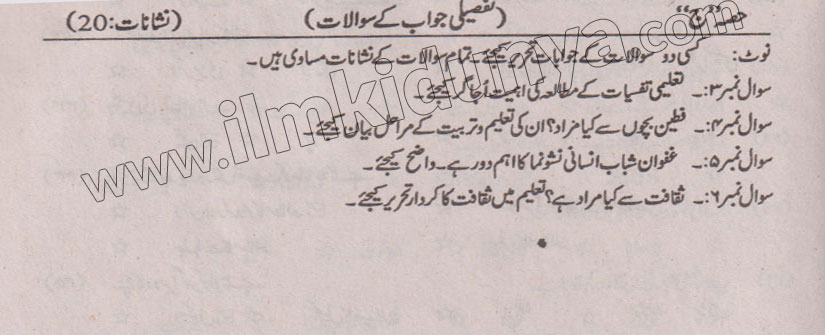 حصہ "ج" (تفصیلی جواب کے سوالات) (نشانات: 20)
نوٹ: کسی دو سوالات کے جوابات تحریر کیجئے۔ تمام سوالات کے نشانات مساوی ہیں۔
سوال نمبر ۳:۔ تعلیمی نفسیات کے مطالعہ کی اہمیت اُجاگر کیجئے۔
سوال نمبر ۴:۔ فطین بچوں سے کیا مراد؟ ان کی تعلیم و تربیت کے مراحل بیان کیجئے۔
سوال نمبر ۵:۔ عنفوان شباب انسانی نشوونما کا اہم دور ہے۔ واضح کیجئے۔
سوال نمبر ۶:۔ ثقافت سے کیا مراد ہے؟ تعلیم میں ثقافت کا کردار تحریر کیجئے۔
www.ilmkidunya.com